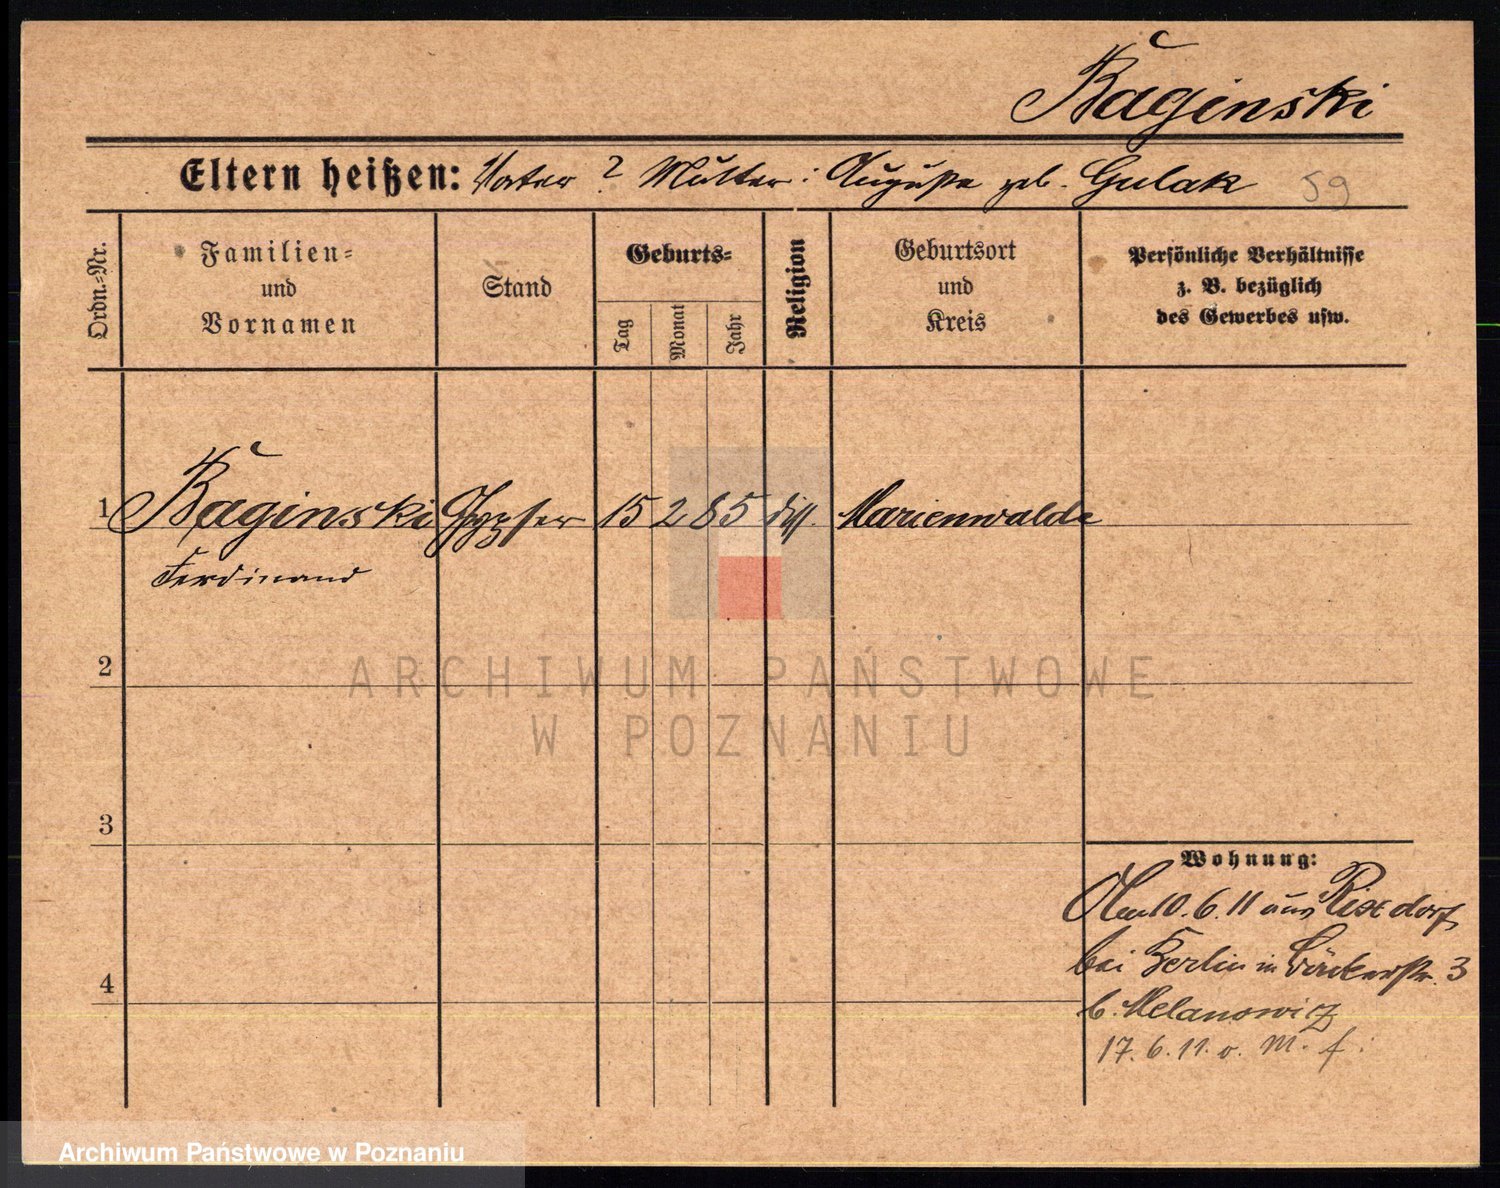 Baginski
Eltern heißen: Vater ? Mutter: Auguste geb. Gulak 59
Ordn.-Nr.
Familien-
und
Vornamen
Stand
Geburts-
Tag
Monat
Jahr
Religion
Geburtsort
und
Kreis
Persönliche Verhältnisse
z. B. bezüglich
des Gewerbes usw.
1 Baginski 15 2 85 diss. Marienwalde
Ferdinand
2
3
4
Wohnung:
10.6.11 aus Rixdorf
bei Berlin in 3
b. Melanowicz
17.6.11. o. M. f.
ARCHIWUM PAŃSTWOWE
W POZNANIU
Archiwum Państwowe w Poznaniu